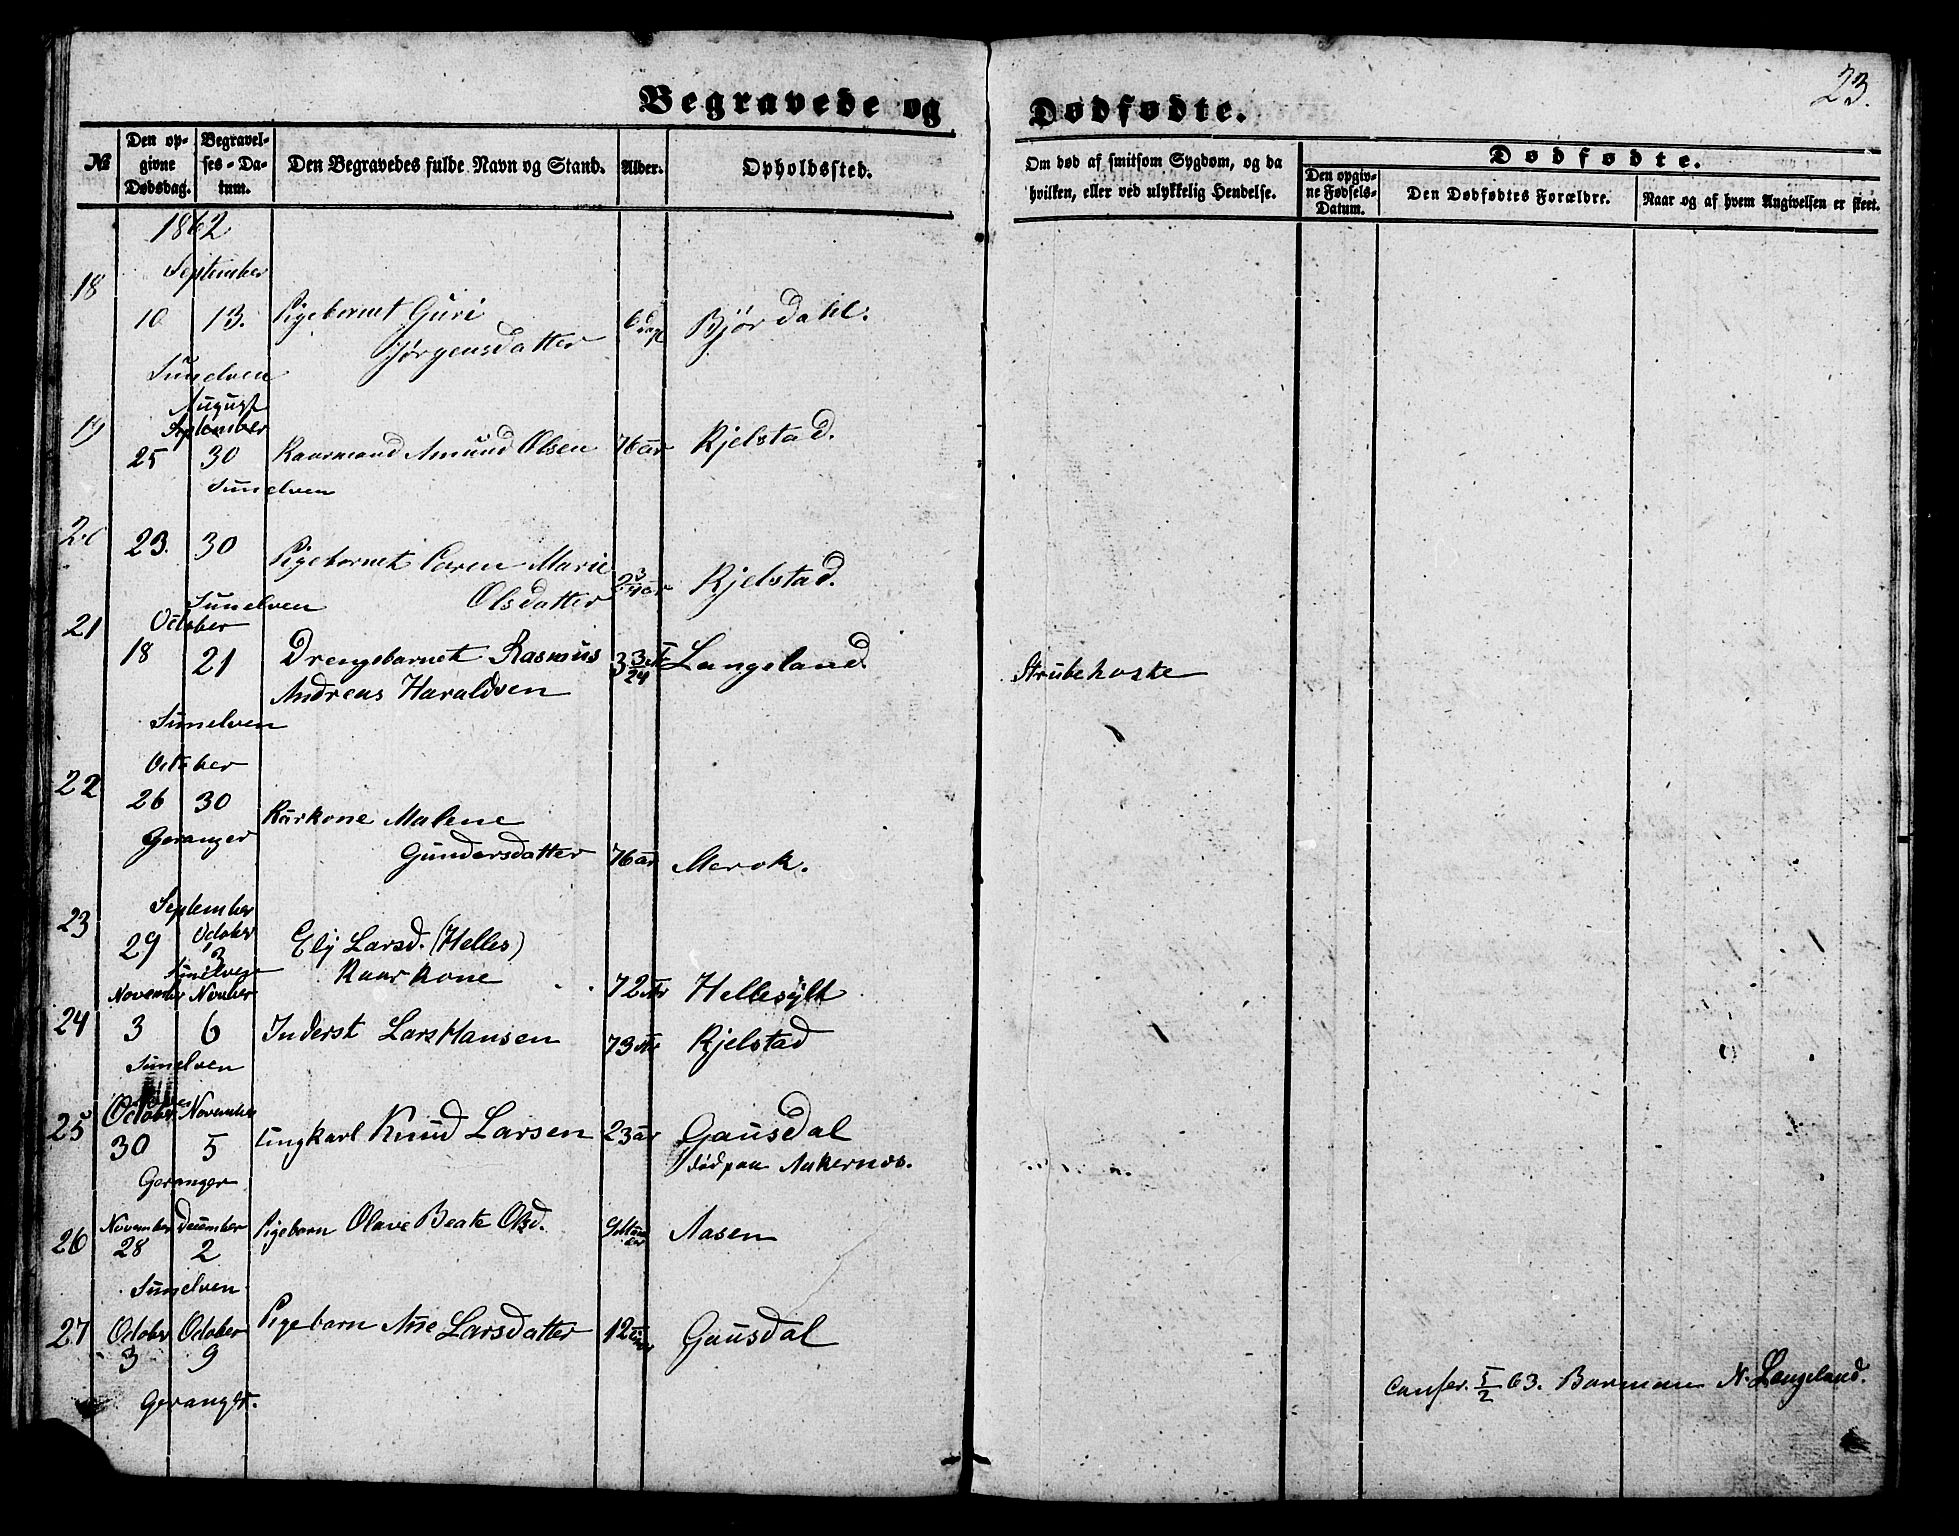 23.
Begravede og Dødfødte.
№
Den opgivne Dødsdag.
Begravelses-Datum.
Den Begravedes fulde Navn og Stand.
Alder.
Opholdssted.
Om død af smitsom Sygdom, og da hvilken, eller ved ulykkelig Hendelse.
Dødfødte.
Den opgivne Fødsels-Datum.
Den Dødfødtes Forældre.
Naar og af hvem Angivelsen er skeet.
1862
September
18 10 13. Pigebarnet Guri 6 dage Bjørdahl.
Jørgensdatter
Sunelven
August
September
19 25 30 Kaarmand Amund Olsen 76 aar Kjelstad.
Sunelven
20 23. 30 Pigebarnet Caren Marie Kjelstad.
Olsdatter
Sunelven
October
21 18 21 Drengebarnet Rasmus 3 3/24 Langeland Strubehoste
Andreas Haraldsen
Sunelven
October
22 26 30 Kårkone Malene
Geranger Gundersdatter 76 år Merok.
September October
23 29 3 Ely Larsd. (Helles)
Sunelven Kaarkone 72 Ar Hellesylt
November November
24 3 6 Inderst Lars Hansen 73 Ar Kjelstad
Sunelven
October November
25 30 5 Ungkarl Knud Larsen 23 år Gausdal
død paa Aakernes.
Geranger
November December
26 28 2 Pigebarn Olave Beate Olsd. Aasen
Sunelven
October October
27 3 9 Pigebarn Ane Larsdatter 12 Gausdal
Geranger.
Confer. 5/2 63. Barman N. Langeland.